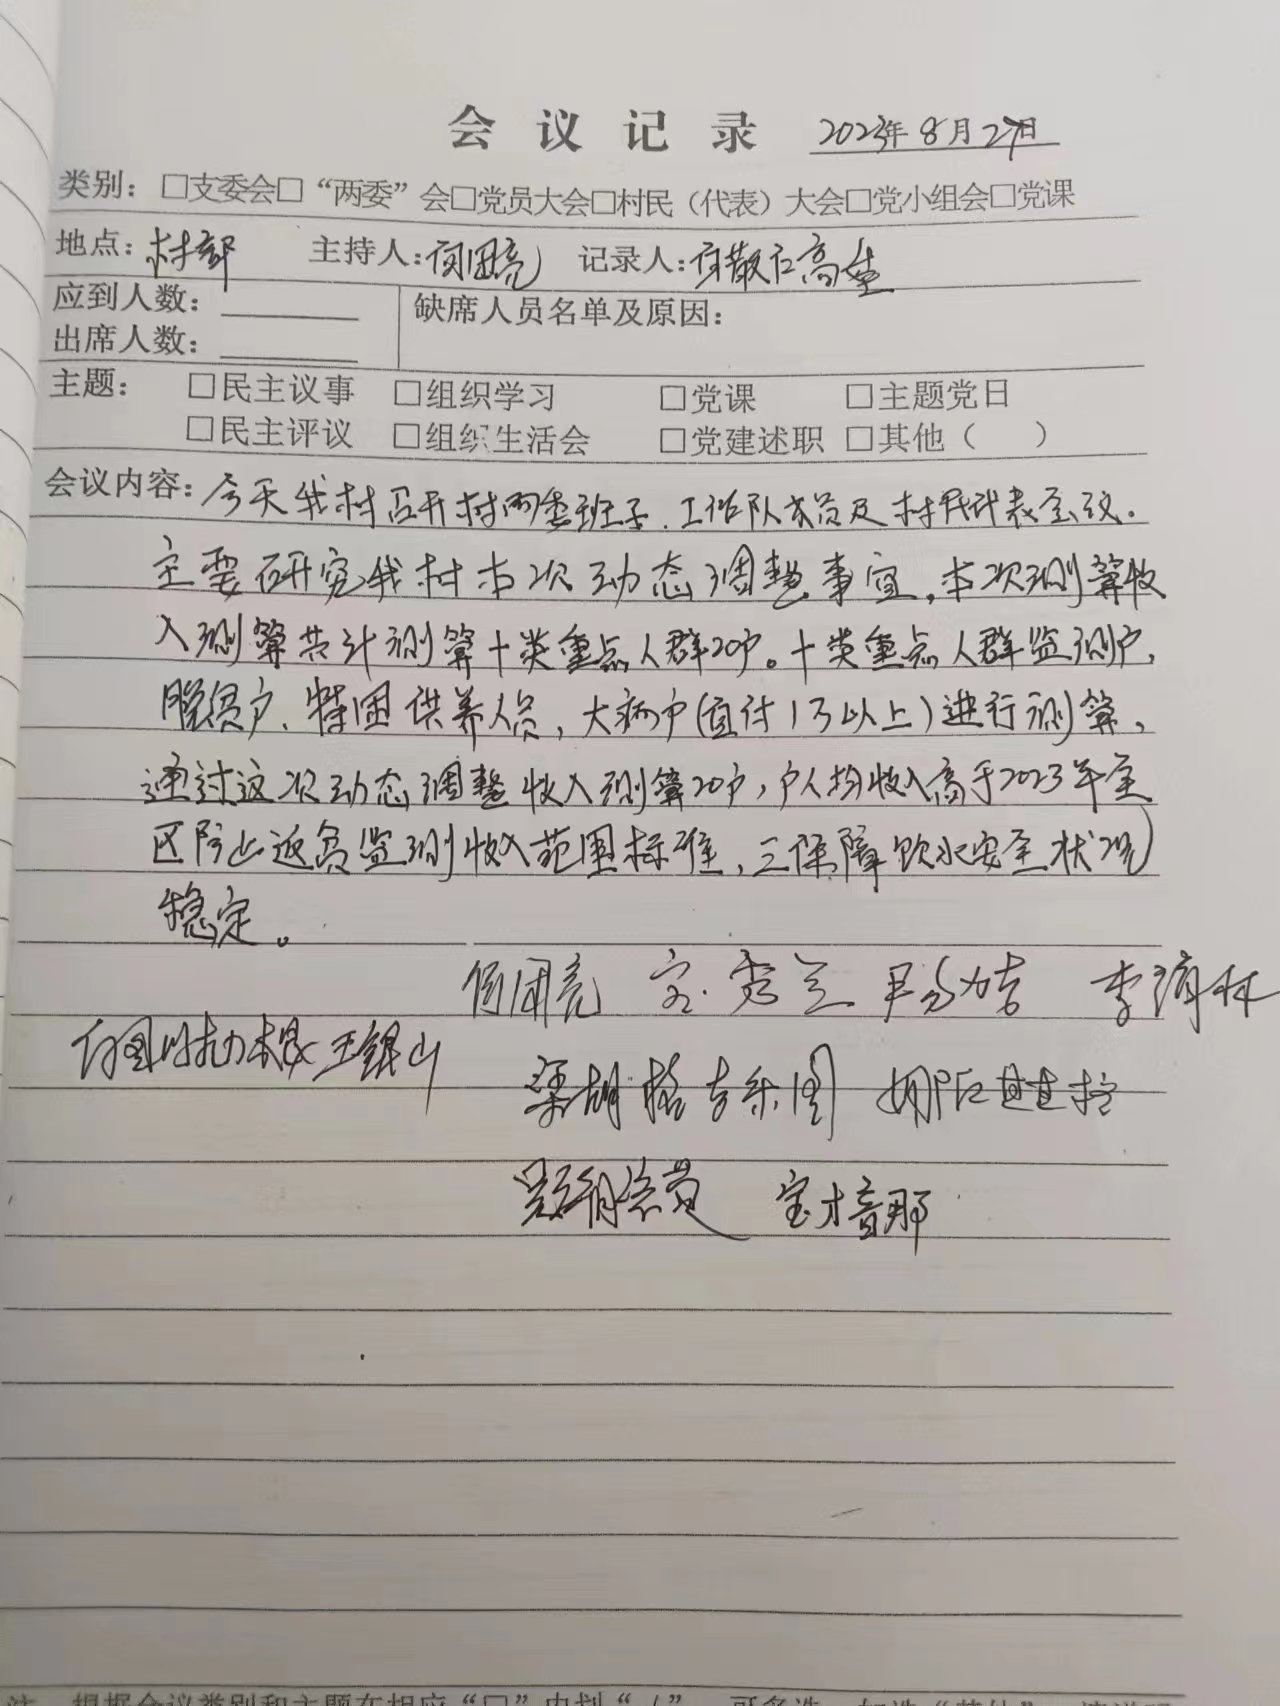 会议记录 2023年8月27日
类别：□支委会□“两委”会□党员大会□村民（代表）大会□党小组会□党课
地点：村部 主持人： 记录人：
应到人数： 缺席人员名单及原因：
出席人数：
主题： □民主议事 □组织学习 □党课 □主题党日
□民主评议 □组织生活会 □党建述职 □其他（ ）
会议内容：今天我村召开村两委班子、工作队队员及村民代表会议.
主要研究我村本次动态调整事宜，本次测算收
入测算共计测算十类重点人群20户。十类重点人群监测户，
脱贫户、特困供养人员，大病户(自付1万以上)进行测算，
通过这次动态调整收入测算20户，户人均收入高于2023年全
区防止返贫监测收入范围标准，三保障饮水安全状况
稳定。
王银山
宝音那